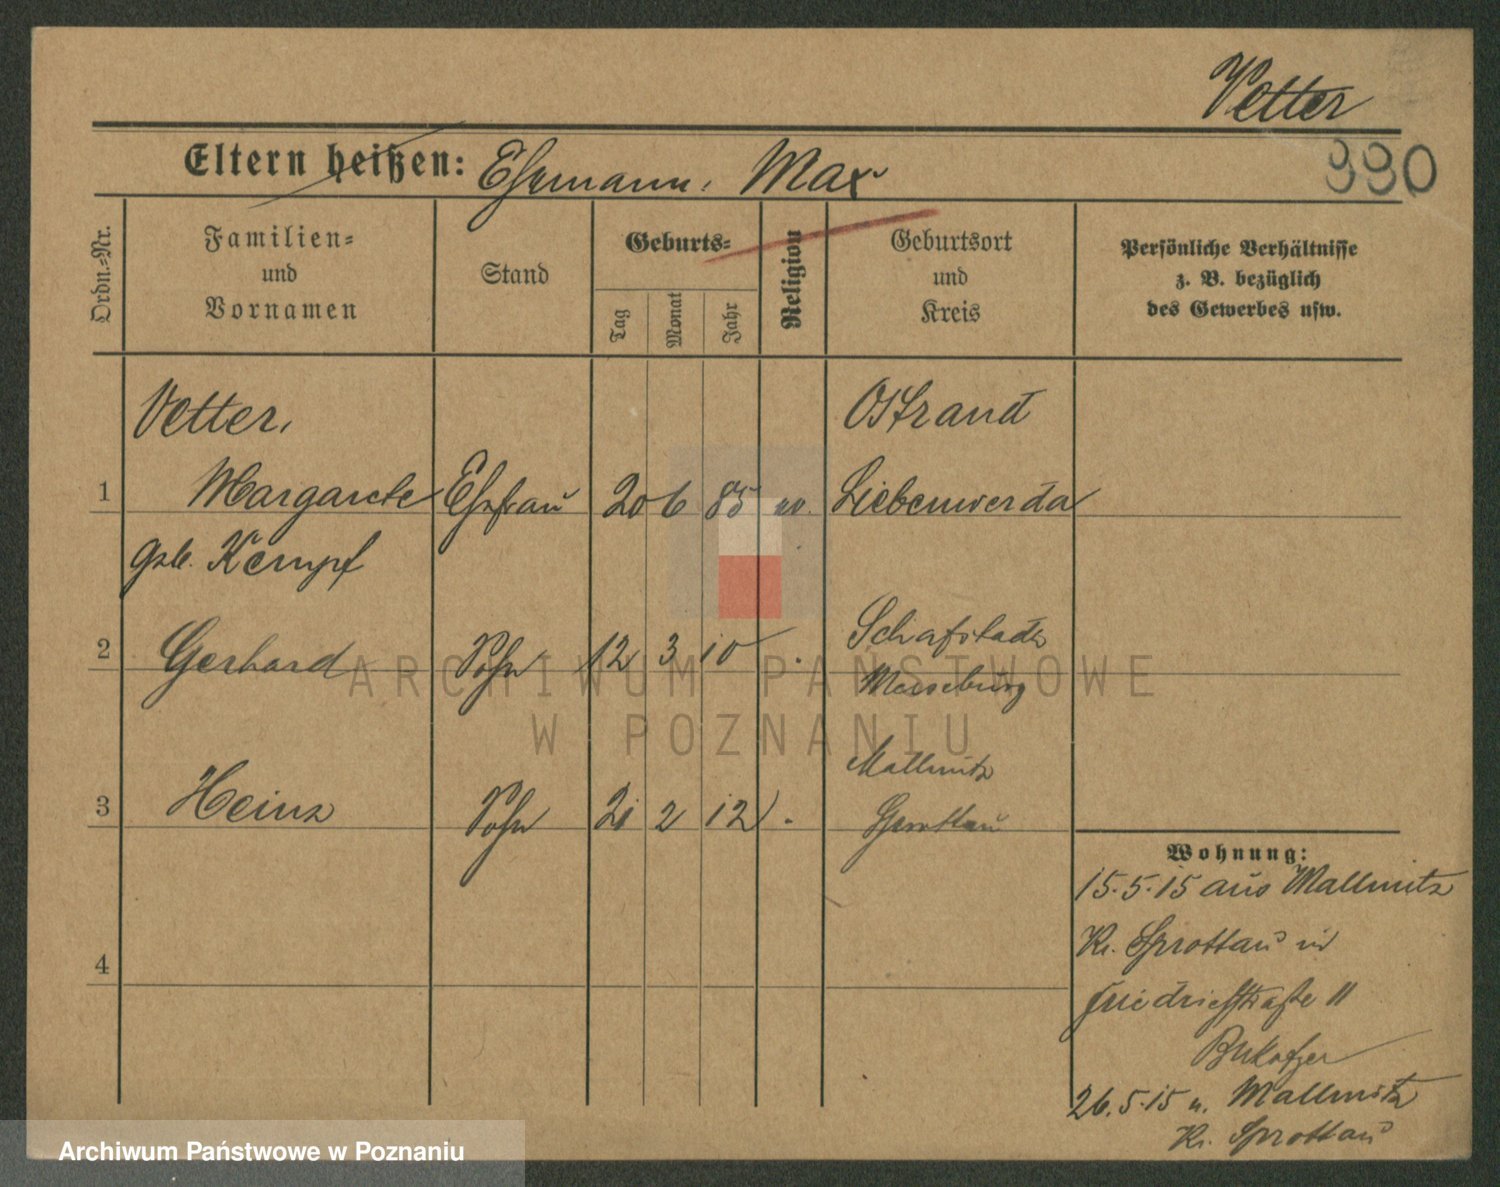 Vetter
Eltern heißen: Ehemann: Max
990
Ordn.-Nr.
Familien-
und
Vornamen
Stand
Geburts-
Tag
Monat
Jahr
Religion
Geburtsort
und
Kreis
Persönliche Verhältnisse
z. B. bezüglich
des Gewerbes usw.
Vetter, Ostrand
1 Margarete Ehefrau 20 6 85 ev. Liebenwerda
geb. Kempf
2 Gerhard Sohn 12 3 10 Schafstadt
Merseburg
Mallmitz
3 Heinz Sohn 21 2 12 Sprottau
Wohnung:
15.5.15 aus Mallmitz
Kr. Sprottau in
4
Friedrichstraße 11
26.5.15 n. Mallmitz
Kr. Sprottau
ARCHIWUM PAŃSTWOWE
W POZNANIU
Archiwum Państwowe w Poznaniu